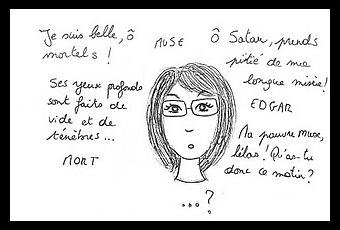 Je suis belle, ô
mortels !
MUSE
Ô Satan, prends
pitié de ma
longue misère!
Ses yeux profonds
sont faits de
vide et de
ténèbres...
MORT
EDGAR
Ma pauvre muse,
hélas! Qu'as-tu
donc ce matin?
...?